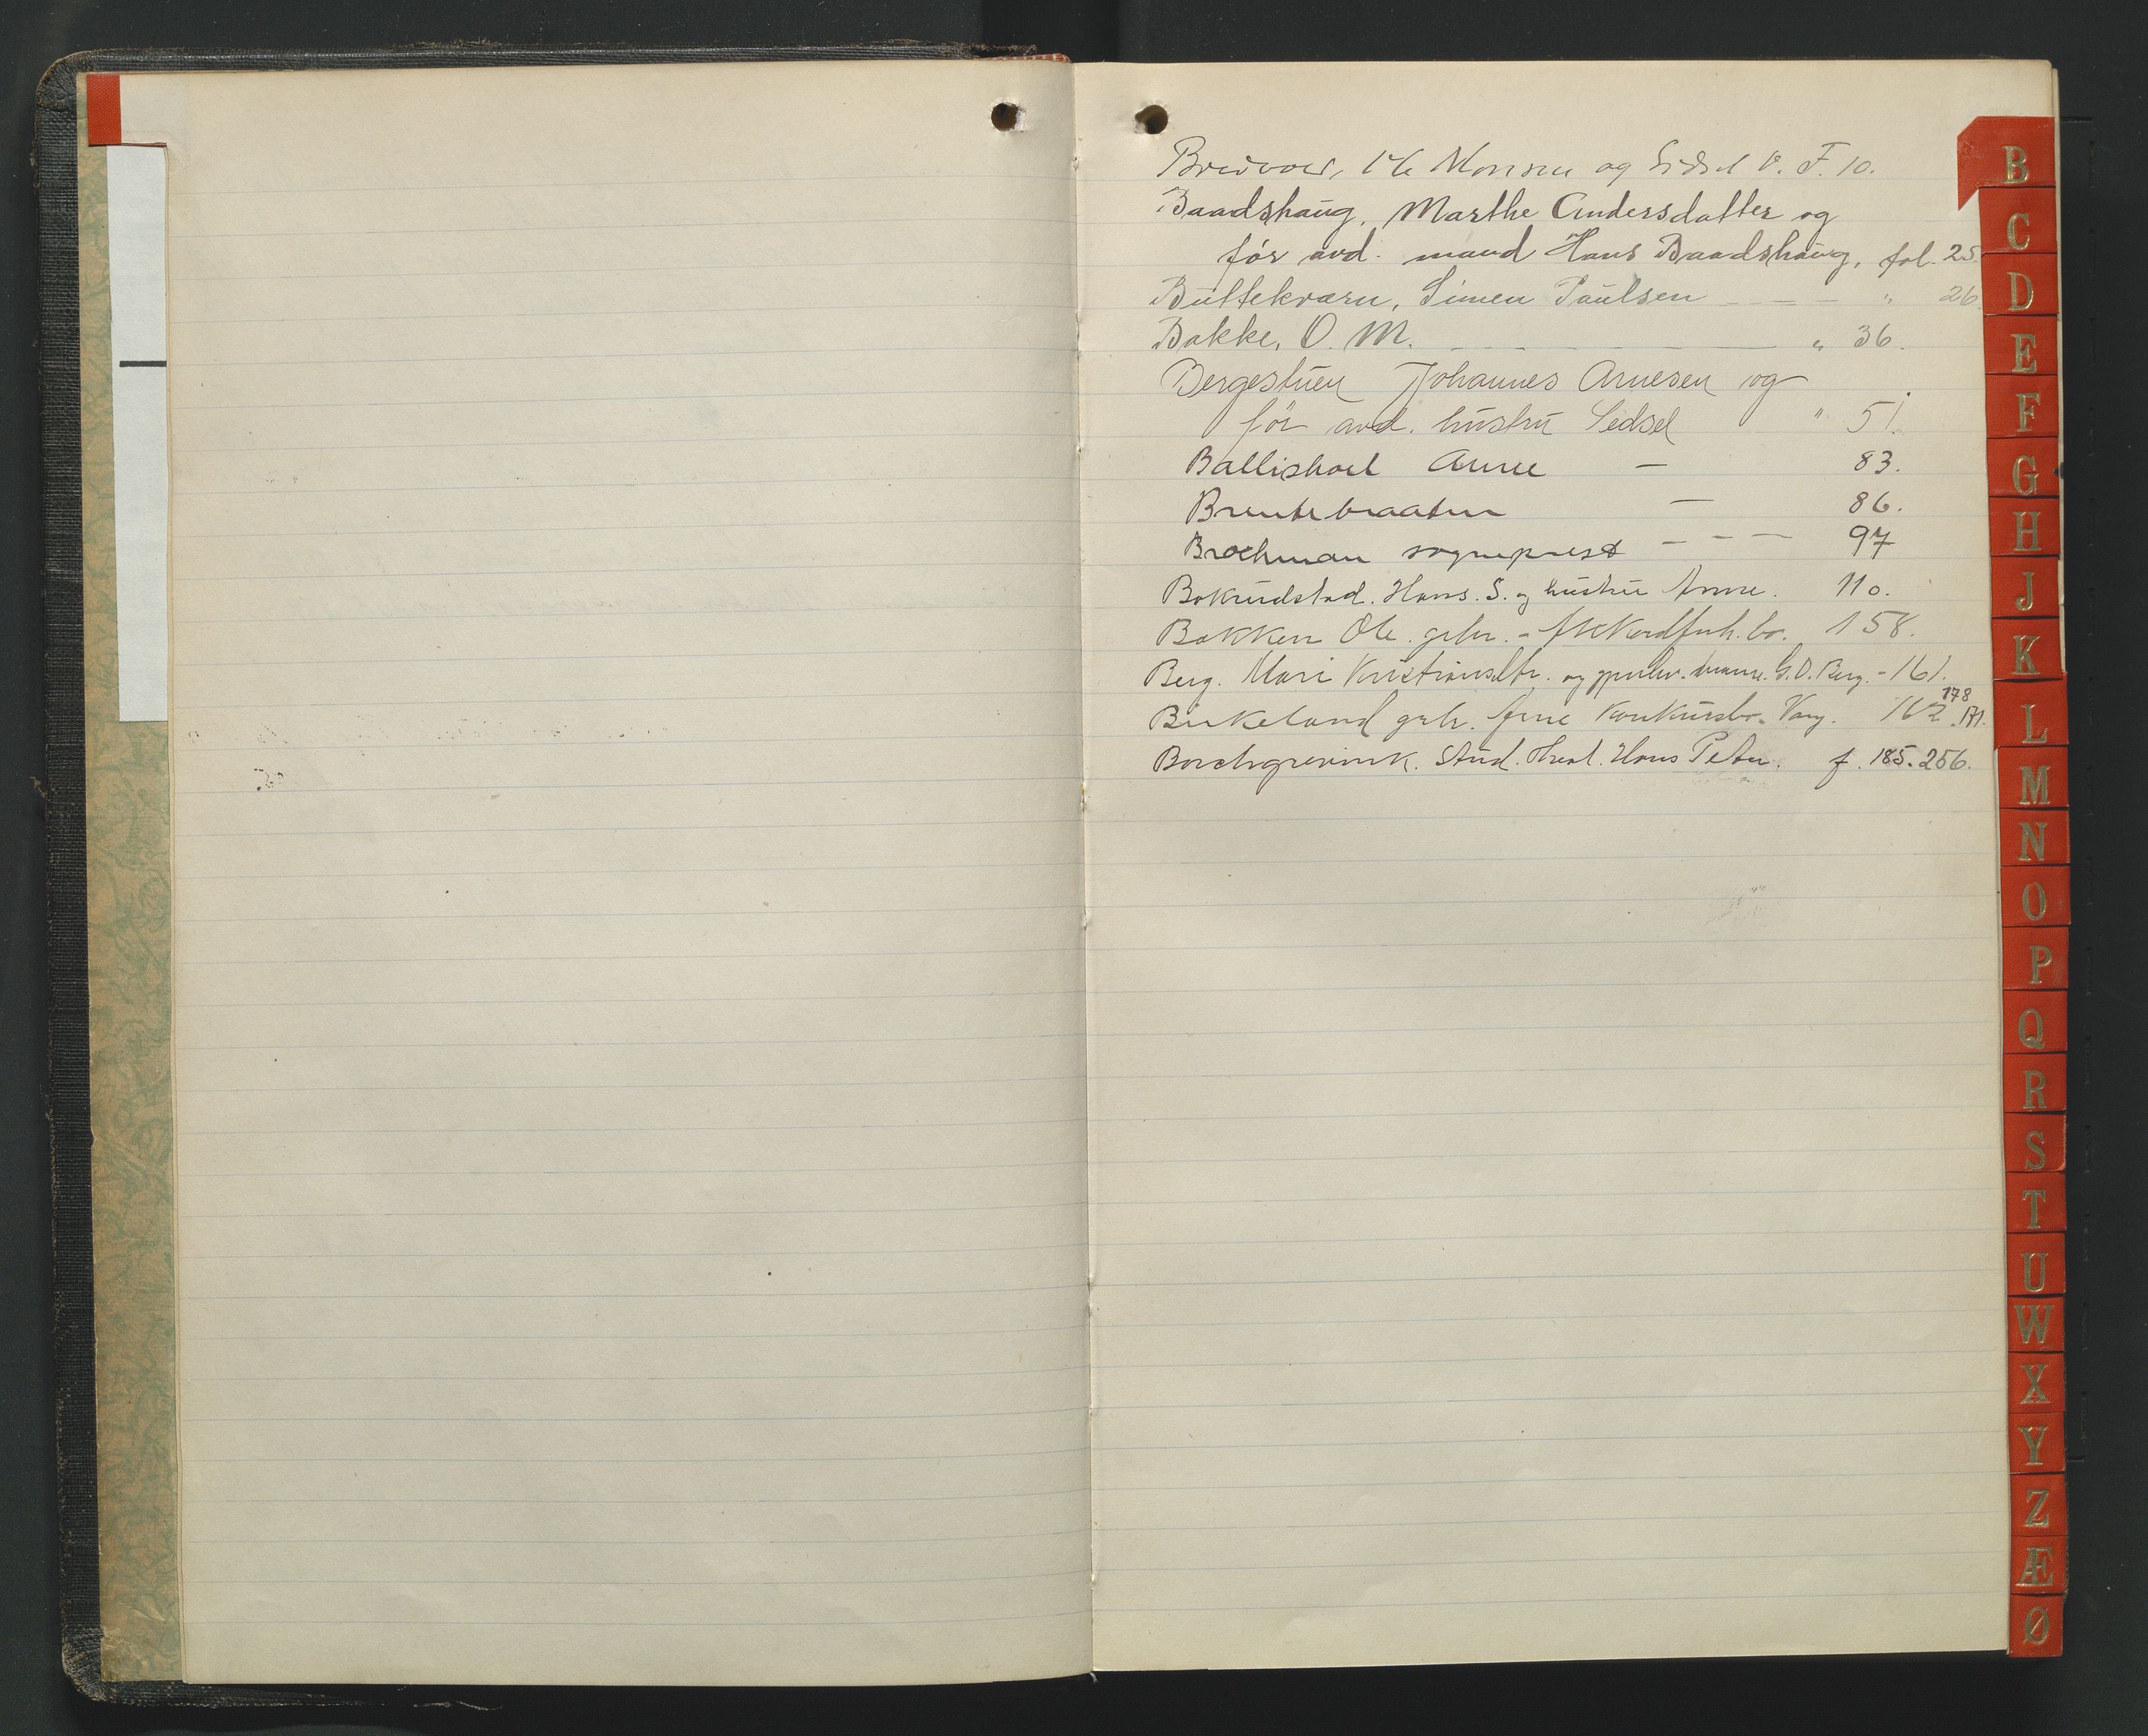 Bredvold, Ole Monsen og Sidsel O. F. 10.
Baadshaug, Marthe Andersdatter og
før avd. mand Hans Baadshaug, fol. 25.
Bültekværn, Simen Paulsen — — — " 26
Bakke, O. M. — — — " 36.
Bergestuen Johannes Arnesen og
før avd. hustru Sedsel " 51.
Ballishoel Anne — 83.
Brentebraaten — 86.
Brochman sogneprest — — — 97
Bokundstad. Hans. S. og hustru Anne. 110.
Bakken Ole. grhr. - Akkordforh. bo. 158.
Berg. Mari Kristiansdtr. og G. O. Berg. - 161.
Birkeland grhr. Arne Konkursbo. Vang. 162. 171. 178
Borchgrevink. Stud. Theol. Hans Peter. f. 185. 256.
B
C
D
E
F
G
H
J
K
L
M
N
O
P
Q
R
S
T
U
W
X
Y
Z
Æ
Ø